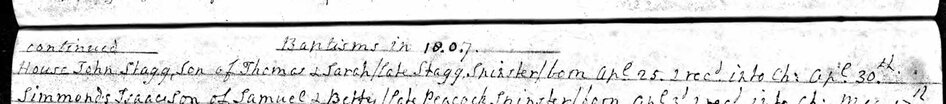 continued Baptisms in 1807.
House John Stagg, Son of Thomas & Sarah /late Stagg, Spinster/ born Apl 25. & rec'd into Ch: Apl 30th.
Simmonds Isaac Son of Samuel & Betty /late Peacock, Spinster/ born Apl & rec'd into Ch: